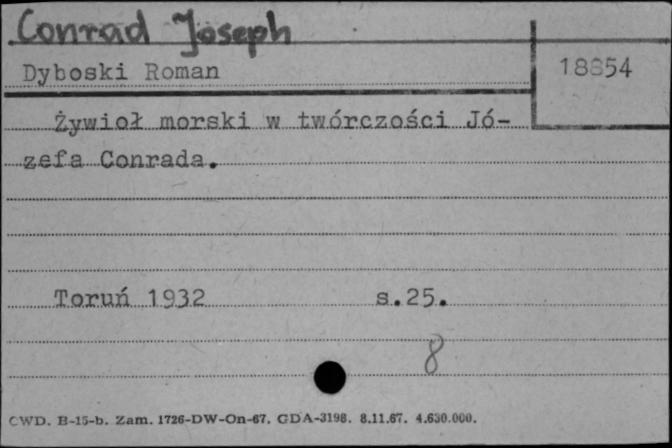 Conrad Joseph
Dyboski Roman
18854
Żywioł morski w twórczości Jó-
zefa Conrada.
Toruń 1932 s.25.
8
CWD. B-15-b. Zam. 1726-DW-On-67. GDA-3198. 8.11.67. 4.630.000.